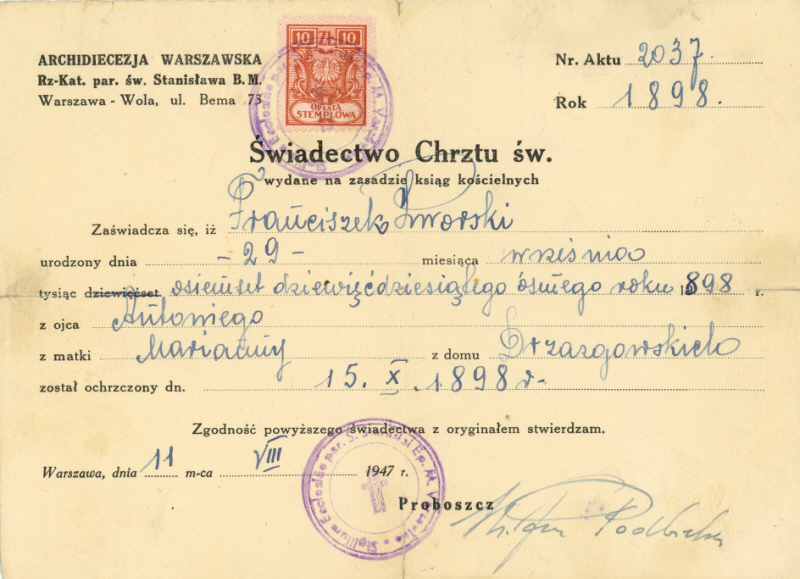 ARCHIDIECEZJA WARSZAWSKA
Rz-Kat. par. św. Stanisława B. M.
Warszawa - Wola, ul. Bema 73
10 ZŁ 10
OPŁATA
STEMPLOWA
Nr. Aktu 2037
Rok 1898.
Świadectwo Chrztu św.
wydane na zasadzie ksiąg kościelnych
Zaświadcza się, iż Franciszek
urodzony dnia - 29 - miesiąca września
tysiąc dziewięćset osiemset dziewięćdziesiątego ósmego roku 1898 r.
z ojca Antoniego
z matki Marianny z domu Drzazgowskich
został ochrzczony dn. 15. X. 1898 r.
Zgodność powyższego świadectwa z oryginałem stwierdzam.
Warszawa, dnia 11 m-ca VIII 1947 r.
Proboszcz